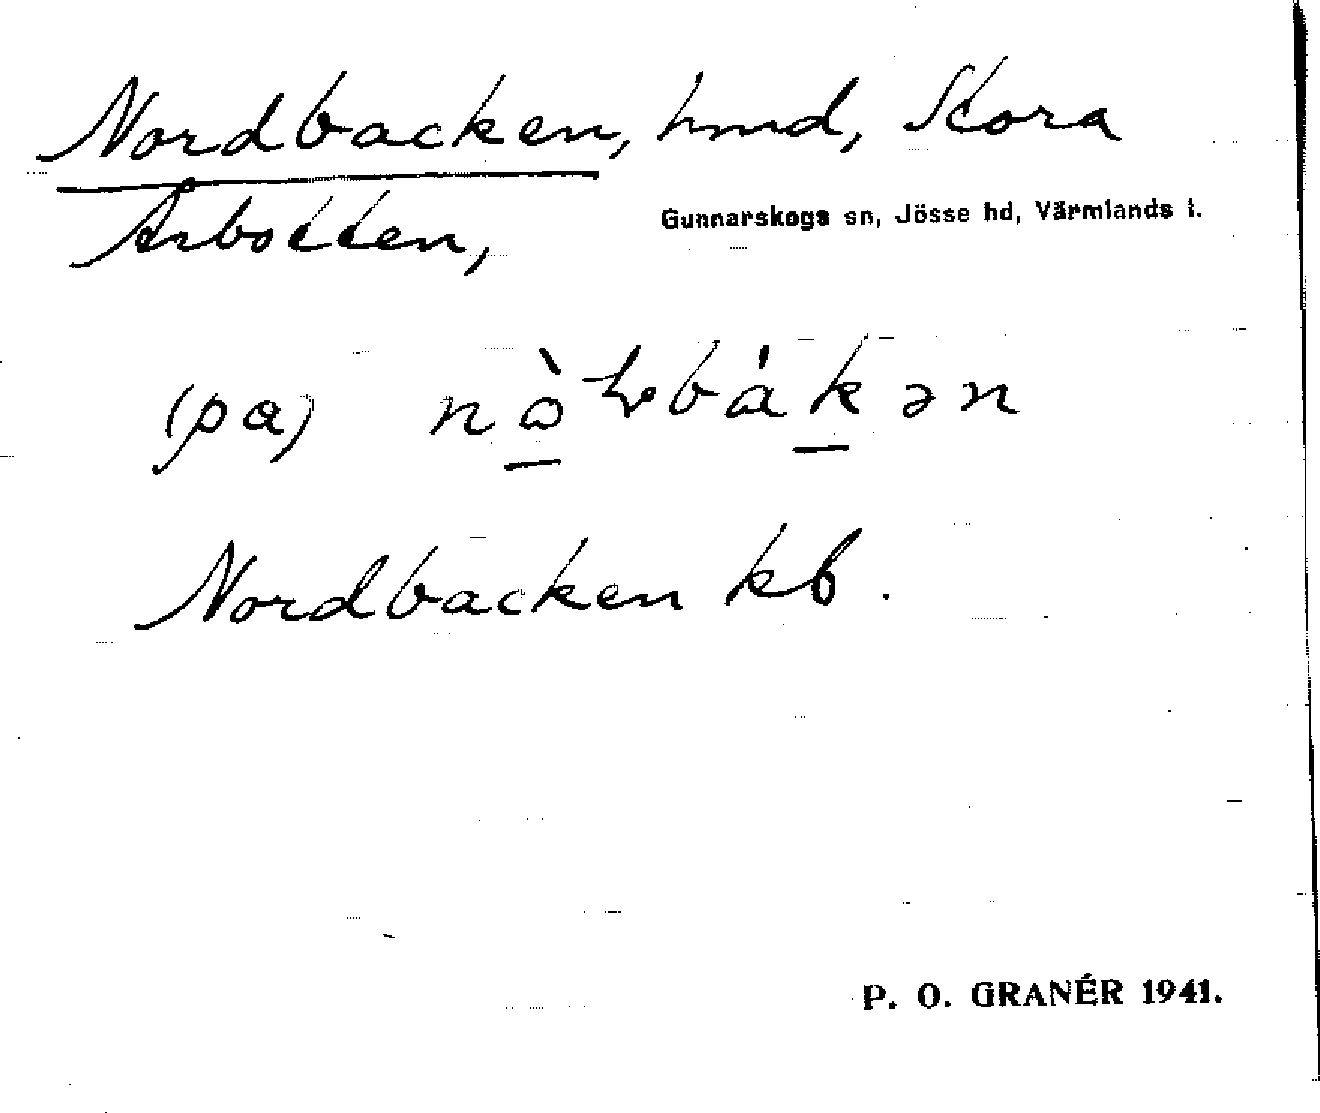 Nordbacken, hmd, Stora
Arbotten,
Gunnarskogs sn, Jösse hd, Värmlands l.
(pa)
Nordbacken kb.
P. O. GRANÉR 1941.